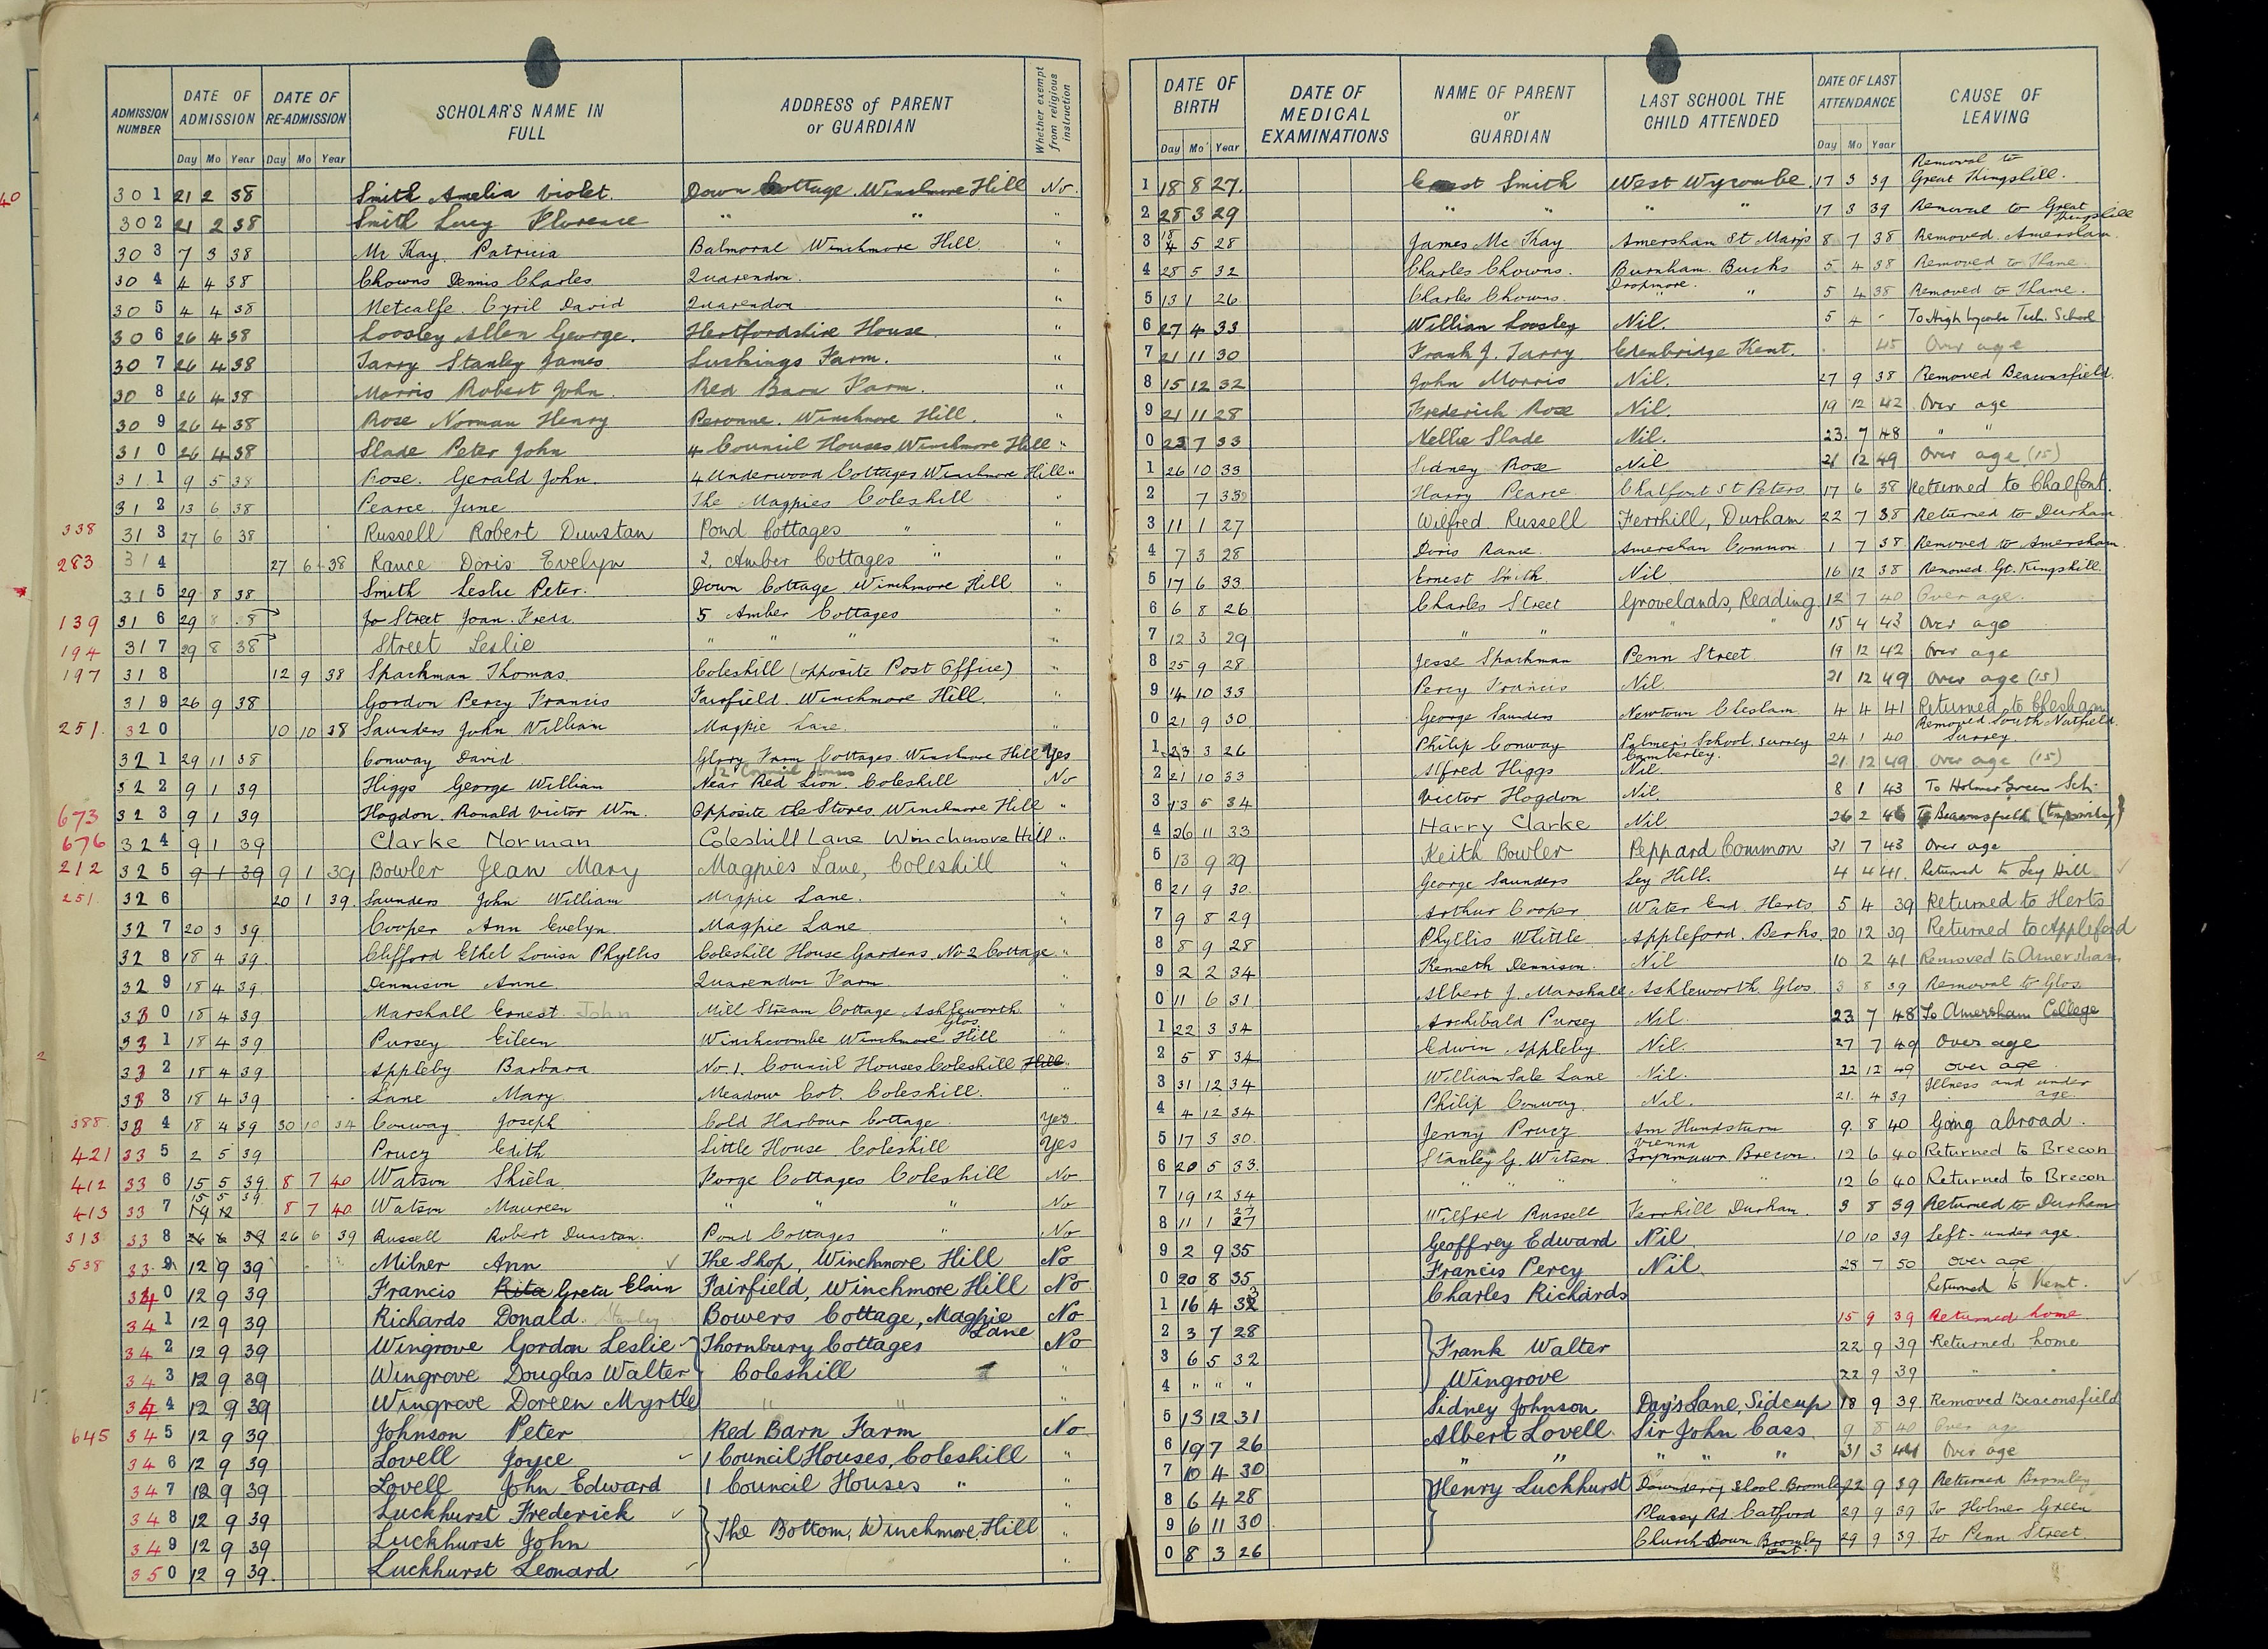 ADMISSION NUMBER | DATE OF ADMISSION Day Mo Year | DATE OF RE-ADMISSION Day Mo Year | SCHOLAR'S NAME IN FULL | ADDRESS of PARENT or GUARDIAN | Whether exempt from religious instruction
301 21 2 38 Smith Amelia Violet. Down Cottage. Winchmore Hill No.
302 21 2 38 Smith Lucy Florence " "
303 7 3 38 Mc Kay. Patricia Balmoral Winchmore Hill. "
304 4 4 38 Chowns Dennis Charles Quarendon. "
305 4 4 38 Metcalfe. Cyril David Quarendon "
306 26 4 38 Loosley Allen George. Hertfordshire House "
307 26 4 38 Tarry Stanley James Luckings Farm. "
308 26 4 38 Morris Robert John. Red Barn Farm. "
309 26 4 38 Rose Norman Henry Peronne. Winchmore Hill. "
310 26 4 38 Slade Peter John 4 Council Houses Winchmore Hill "
311 9 5 38 Rose. Gerald John. 4 Underwood Cottages Winchmore Hill "
312 13 6 38 Pearce June The Magpies Coleshill "
338 313 27 6 38 Russell Robert Dunstan Pond Cottages " "
283 314 27 6 38 Rance Doris Evelyn 2. Amber Cottages " "
315 29 8 38 Smith Leslie Peter. Down Cottage Winchmore Hill. "
139 316 29 8 8 Street Joan. Freda. 5 Amber Cottages "
194 317 29 8 38 Street Leslie " " " "
197 318 12 9 38 Sparkman Thomas Coleshill (opposite Post Office) "
319 26 9 38 Gordon Percy Francis Fairfield. Winchmore Hill. "
251. 320 10 10 38 Saunders John William Magpie Lane. "
321 29 11 38 Conway David Glory Farm Cottages. Winchmore Hill Yes
12 Council Houses
322 9 1 39 Higgs George William Near Red Lion. Coleshill No
673 323 9 1 39 Hogdon. Ronald Victor Wm. Opposite the Stores. Winchmore Hill "
676 324 9 1 39 Clarke Norman Coleshill Lane Winchmore Hill "
212 325 9 1 39 9 1 39 Bowler Jean Mary Magpies Lane, Coleshill "
251. 326 20 1 39. Saunders John William Magpie Lane. "
327 20 3 39 Cooper Ann Evelyn. Magpie Lane "
328 18 4 39. Clifford Ethel Louisa Phyllis Coleshill House Gardens. No 2 Cottage "
329 18 4 39. Dennison Anne Quarendon Farm "
330 18 4 39 Marshall Ernest John Mill Stream Cottage Ashleworth Glos. "
331 18 4 39 Pursey Eileen Winshcombe Winchmore Hill "
332 18 4 39 Appleby Barbara No 1. Council Houses Coleshill Hill "
333 18 4 39 Lane Mary Meadow Cot. Coleshill. "
388. 334 18 4 39 30 10 34 Conway Joseph Cold Harbour Cottage Yes.
421 335 2 5 39 Prucz Edith Little House Coleshill Yes
412 336 15 5 39. 8 7 40 Watson Shiela Forge Cottages Coleshill No
413 337 15 5 39 14 12 8 7 40 Watson Maureen " " " No
313 338 26 6 39 26 6 39 Russell Robert Dunstan. Pond Cottages " No
538 339 12 9 39 Milner Ann The Shop, Winchmore Hill No
340 12 9 39 Francis Rita Greta Elain Fairfield, Winchmore Hill No
341 12 9 39 Richards Donald. Stanley Bowers Cottage, Magpie Lane No
342 12 9 39 Wingrove Gordon Leslie Thornbury Cottages No
343 12 9 39 Wingrove Douglas Walter Coleshill "
344 12 9 39 Wingrove Doreen Myrtle " " "
645 345 12 9 39 Johnson Peter Red Barn Farm No
346 12 9 39 Lovell Joyce 1 Council Houses, Coleshill "
347 12 9 39 Lovell John Edward 1 Council Houses " "
348 12 9 39 Luckhurst Frederick "
349 12 9 39 Luckhurst John The Bottom, Winchmore Hill "
350 12 9 39. Luckhurst Leonard "
DATE OF BIRTH Day Mo Year | DATE OF MEDICAL EXAMINATIONS | NAME OF PARENT or GUARDIAN | LAST SCHOOL THE CHILD ATTENDED | DATE OF LAST ATTENDANCE Day Mo Year | CAUSE OF LEAVING
1 18 8 27. Ernest Smith West Wycombe. 17 3 39 Removal to Great Kingshill.
2 28 3 29 " " " " 17 3 39 Removal to Great Kingshill
3 18 4 5 28 James Mc Kay Amersham St Marys 8 7 38 Removed. Amersham.
4 28 5 32 Charles Chowns. Burnham. Bucks 5 4 38 Removed to Thame.
5 13 1 26 Charles Chowns. Dropmore. " 5 4 38 Removed to Thame.
6 27 4 33 William Loosley Nil. 5 4 - To High Wycombe Tech. School
7 21 11 30 Frank J. Tarry Edenbridge Kent. 45 Over age
8 15 12 32 John Morris Nil. 27 9 38 Removed Beaconsfield.
9 21 11 28 Frederick Rose Nil. 19 12 42 Over age
0 23 7 33 Nellie Slade Nil. 23. 7 48 " "
1 26 10 33 Sidney Rose Nil 21 12 49 Over age (15)
2 7 33 Harry Pearce Chalfont St Peters. 17 6 38 Returned to Chalfont.
3 11 1 27 Wilfred Russell Ferrhill, Durham 22 7 38 Returned to Durham
4 7 3 28 Doris Rance. Amersham Common 1 7 38 Removed to Amersham.
5 17 6 33 Ernest Smith Nil 16 12 38 Removed. Gt. Kingshill.
6 6 8 26 Charles Street Grovelands, Reading. 12 7 40 Over age.
7 12 3 29 " " " " 15 4 43 Over age
8 25 9 28 Jesse Sparkman Penn Street 19 12 42 Over age
9 14 10 33 Percy Francis Nil. 21 12 49 Over age (15)
0 21 9 30 George Saunders Newtown Chesham 4 4 41 Returned to Chesham
1 23 3 26 Philip Conway Palmer's School, Surrey Camberley. 24 1 40 Removed South Nutfield Surrey.
2 21 10 33 Alfred Higgs Nil. 21 12 49 Over age (15)
3 13 5 34 Victor Hogdon Nil. 8 1 43 To Holmer Green Sch.
4 26 11 33 Harry Clarke Nil 26 2 46 To Beaconsfield (Temporarily)
5 13 9 29 Keith Bowler Peppard Common 31 7 43 Over age
6 21 9 30. George Saunders Ley Hill. 4 4 41. Returned to Ley Hill
7 9 8 29 Arthur Cooper Water End. Herts. 5 4 39 Returned to Herts
8 8 9 28 Phyllis Whittle Appleford. Berks. 20 12 39 Returned to Appleford
9 2 2 34 Kenneth Dennison. Nil 10 2 41 Removed to Amersham
0 11 6 31 Albert J. Marshall Ashleworth. Glos. 3 8 39 Removal to Glos.
1 22 3 34 Archibald Pursey Nil. 23 7 48 To Amersham College
2 5 8 34 Edwin Appleby Nil. 27 7 49 Over age
3 31 12 34 William Sale Lane Nil. 22 12 49 over age
4 4 12 34 Philip Conway Nil. 21. 4 39 Illness and under age.
5 17 3 30. Jenny Prucz Am Hundsturm Vienna 9. 8 40 Going abroad.
6 20 5 33. Stanley G. Watson Brynmawr Brecon. 12 6 40 Returned to Brecon
7 19 12 34 " " " " " 12 6 40 Returned to Brecon
8 11 1 27 27 Wilfred Russell Ferrhill Durham. 3 8 39 Returned to Durham
9 2 9 35 Geoffrey Edward Nil 10 10 39 Left - under age.
0 20 8 35 Francis Percy Nil. 28 7 50 over age
1 16 4 32 Charles Richards Returned to Kent.
2 3 7 28 15 9 39 Returned home
3 6 5 32 Frank Walter 22 9 39 Returned home
4 " " " Wingrove 22 9 39 " "
5 13 12 31 Sidney Johnson Day's Lane, Sidcup 18 9 39 Removed Beaconsfield
6 19 7 26 Albert Lovell. Sir John Cass. 9 8 40 Over age
7 10 4 30 " " " " 31 3 44 Over age
8 6 4 28 Henry Luckhurst School Bromley 22 9 39 Returned Bromley
9 6 11 30 Plassy Rd. Catford 29 9 39 To Holmer Green
0 8 3 26 Church Down Bromley Kent. 29 9 39. To Penn Street.